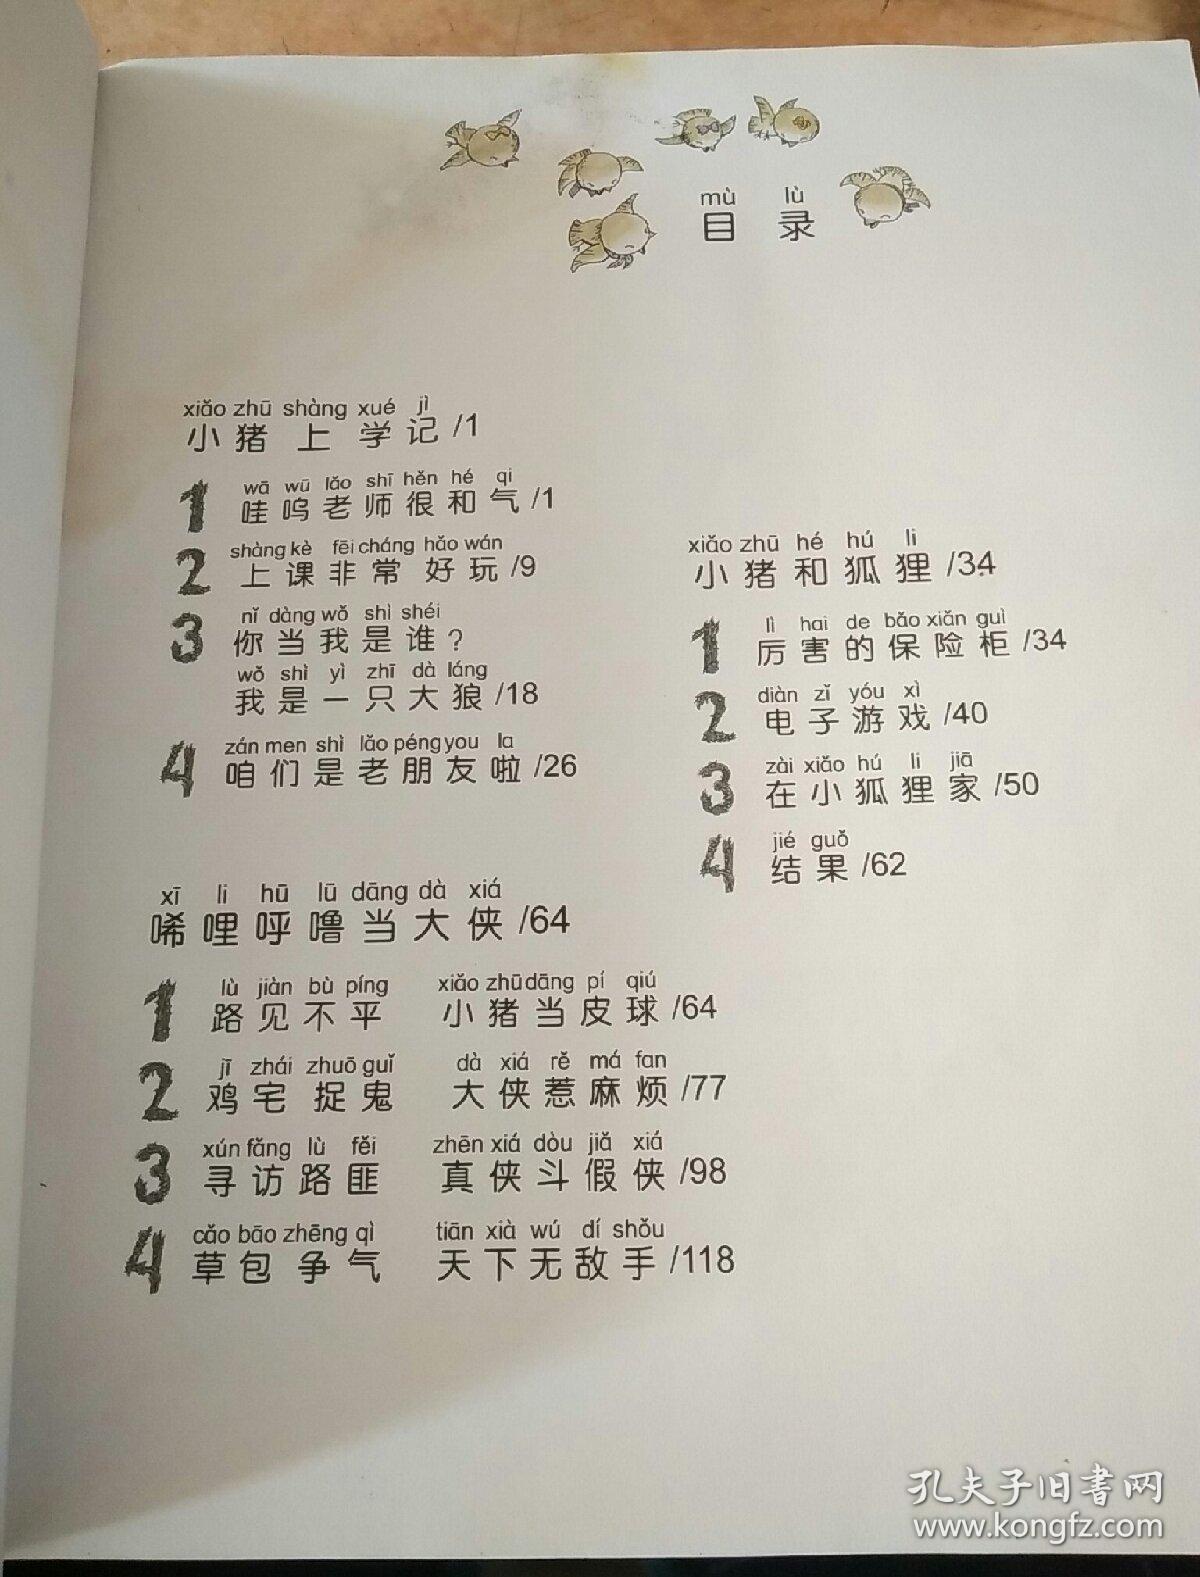 mù lù
目 录
xiǎo zhū shàng xué jì
小 猪 上 学 记 /1
wā wū lǎo shī hěn hé qi
1 哇 呜 老 师 很 和 气 /1
shàng kè fēi cháng hǎo wán
2 上 课 非 常 好 玩 /9
nǐ dàng wǒ shì shéi
3 你 当 我 是 谁 ?
wǒ shì yì zhī dà láng
我 是 一 只 大 狼 /18
zán men shì lǎo péng you la
4 咱 们 是 老 朋 友 啦 /26
xiǎo zhū hé hú li
小 猪 和 狐 狸 /34
lì hai de bǎo xiǎn guì
1 厉 害 的 保 险 柜 /34
diàn zǐ yóu xì
2 电 子 游 戏 /40
zài xiǎo hú li jiā
3 在 小 狐 狸 家 /50
jié guǒ
4 结 果 /62
xī li hū lū dāng dà xiá
唏 哩 呼 噜 当 大 侠 /64
lù jiàn bù píng xiǎo zhū dāng pí qiú
1 路 见 不 平 小 猪 当 皮 球 /64
jī zhái zhuō guǐ dà xiá rě má fan
2 鸡 宅 捉 鬼 大 侠 惹 麻 烦 /77
xún fǎng lù fěi zhēn xiá dòu jiǎ xiá
3 寻 访 路 匪 真 侠 斗 假 侠 /98
cǎo bāo zhēng qì tiān xià wú dí shǒu
4 草 包 争 气 天 下 无 敌 手 /118
孔夫子旧书网
www.kongfz.com